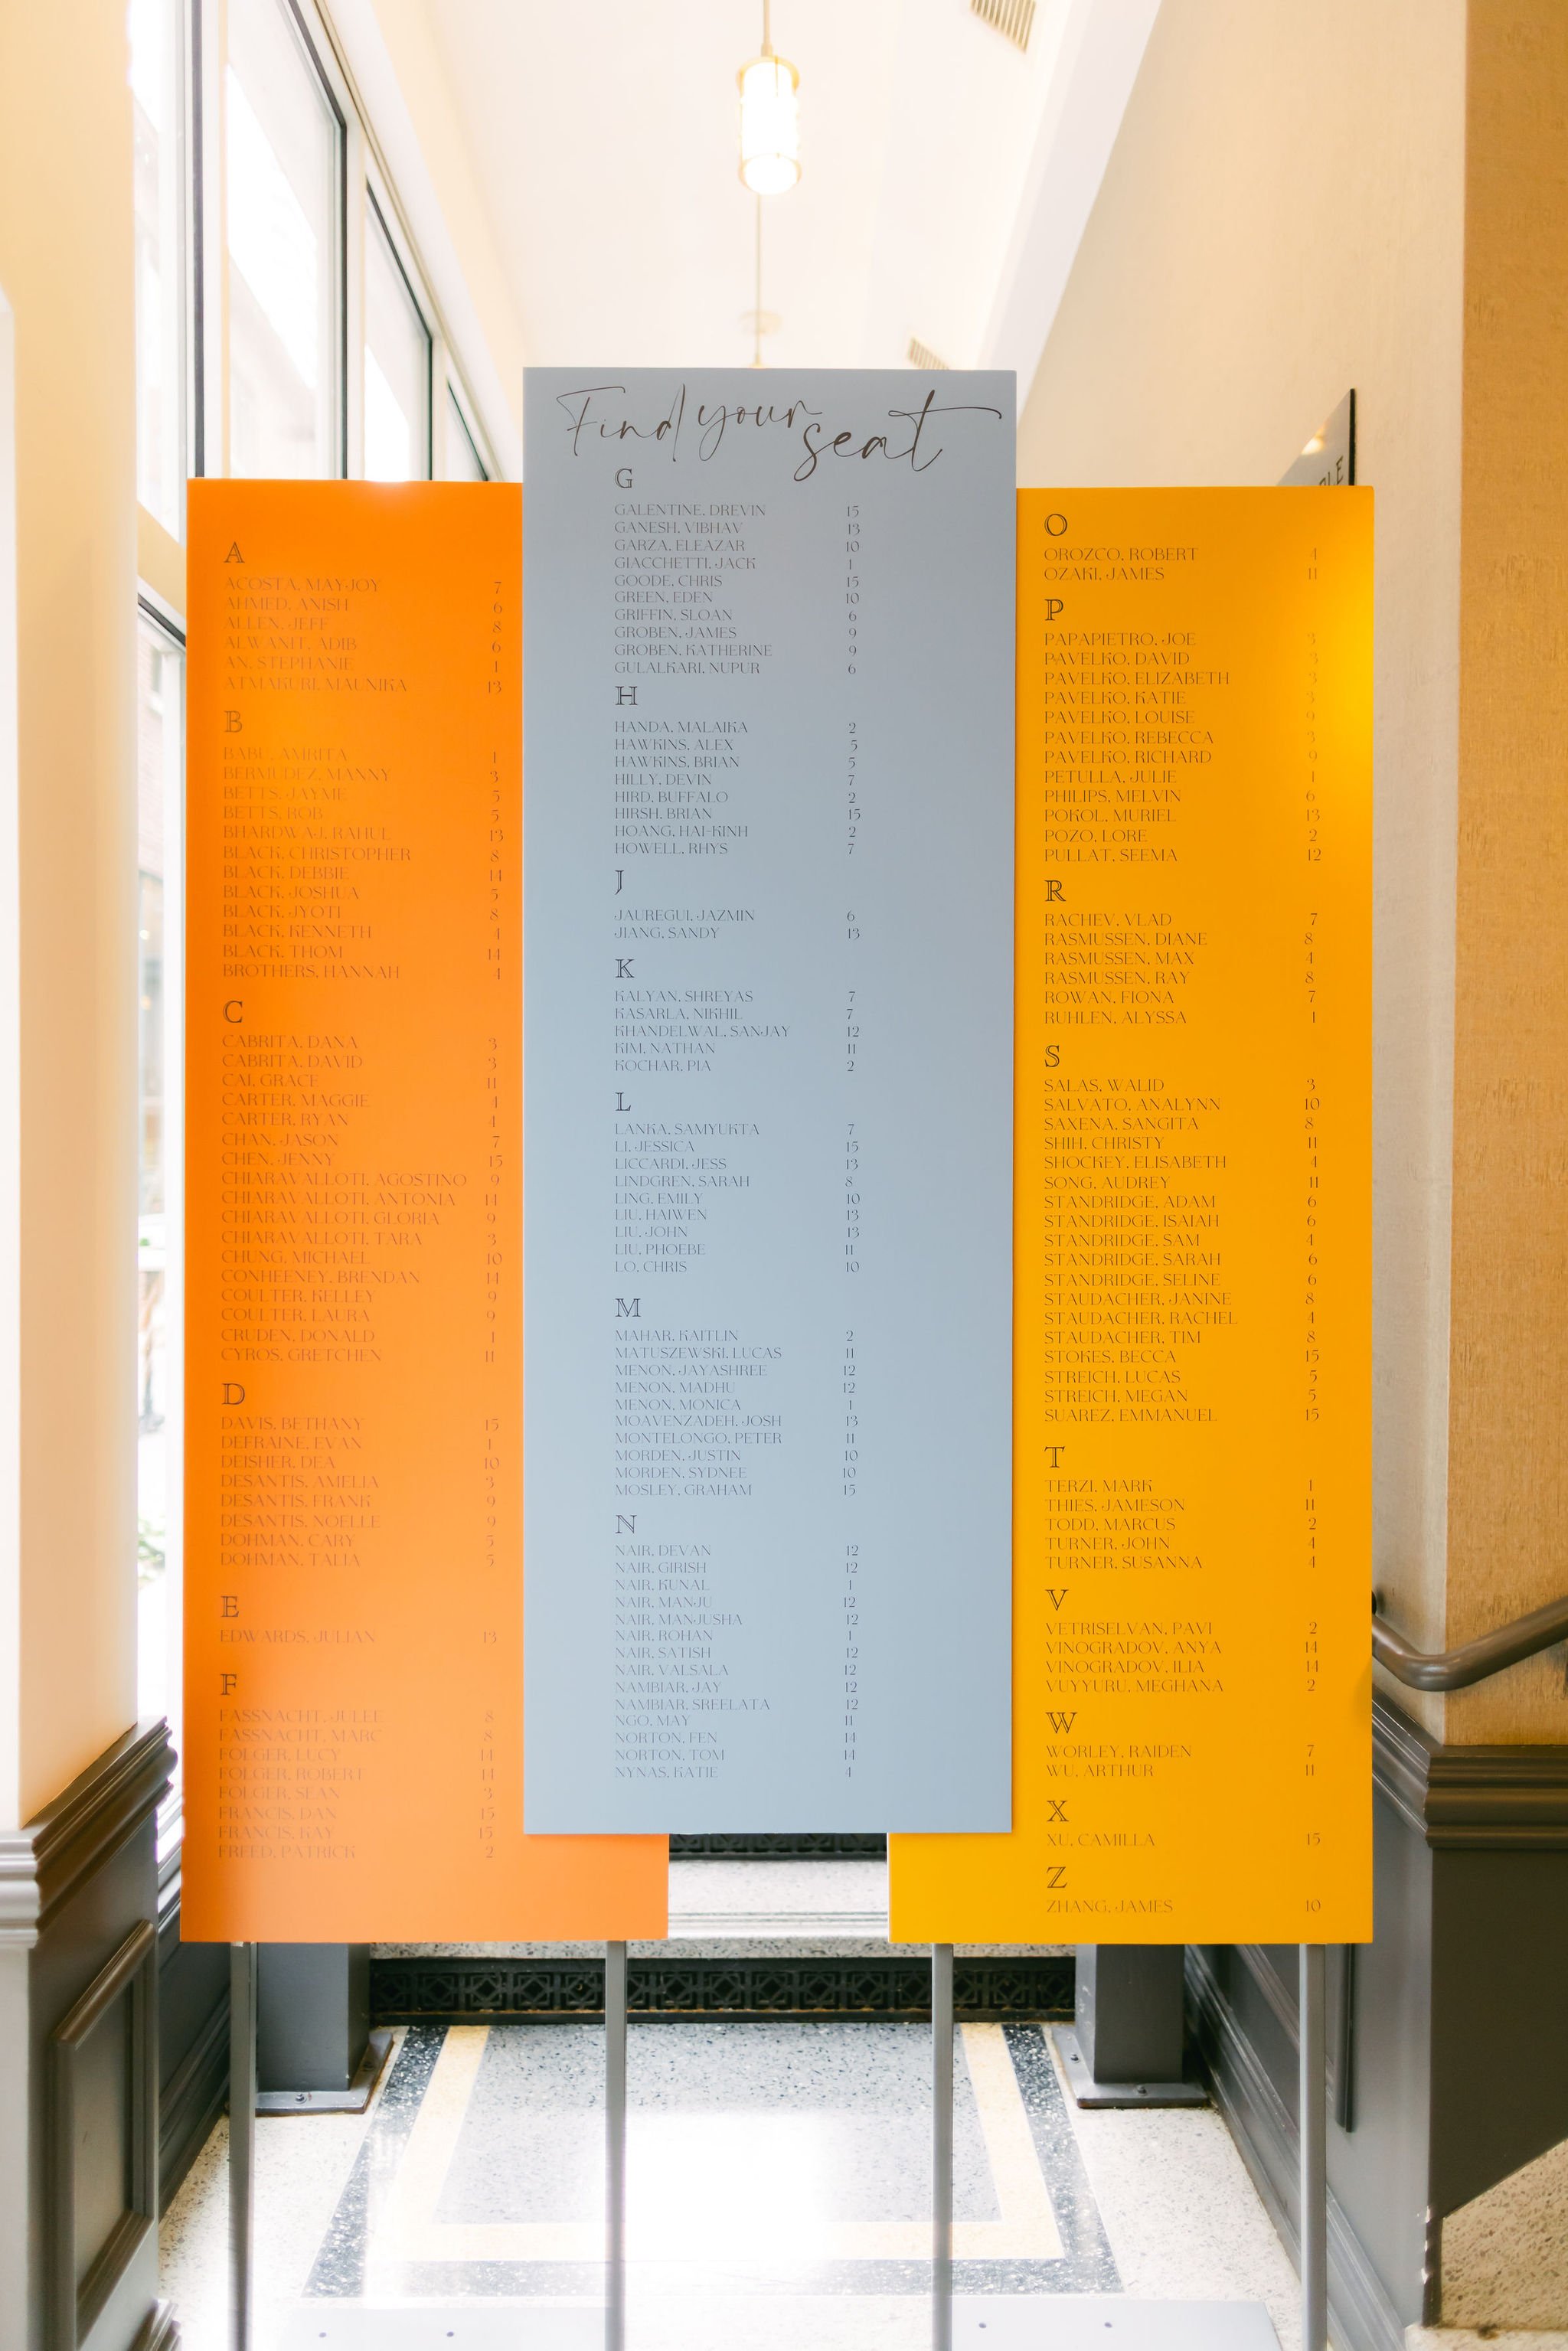 Find your seat
A
ACOSTA, MAYJOY 7
AHMED, ANISH 6
ALLEN, JEFF 8
ALWANIT, ADIB 6
AN, STEPHANIE 1
ATMAKURI, MAUNIKA 13
B
BABU, AMRITA 1
BERMUDEZ, MANNY 3
BETTS, JAYME 5
BETTS, ROB 5
BHARDWAJ, RAHUL 13
BLACK, CHRISTOPHER 8
BLACK, DEBBIE 14
BLACK, JOSHUA 5
BLACK, JYOTI 8
BLACK, KENNETH 4
BLACK, THOM 14
BROTHERS, HANNAH 4
C
CABRITA, DANA 3
CABRITA, DAVID 3
CAI, GRACE 11
CARTER, MAGGIE 4
CARTER, RYAN 4
CHAN, JASON 7
CHEN, JENNY 15
CHIARAVALLOTI, AGOSTINO 9
CHIARAVALLOTI, ANTONIA 14
CHIARAVALLOTI, GLORIA 9
CHIARAVALLOTI, TARA 3
CHUNG, MICHAEL 10
CONHEENEY, BRENDAN 14
COULTER, KELLEY 9
COULTER, LAURA 9
CRUDEN, DONALD 1
CYROS, GRETCHEN 11
D
DAVIS, BETHANY 15
DEFRAINE, EVAN 1
DEISHER, DEA 10
DESANTIS, AMELIA 3
DESANTIS, FRANK 9
DESANTIS, NOELLE 9
DOHMAN, CARY 5
DOHMAN, TALIA 5
E
EDWARDS, JULIAN 13
F
FASSNACHT, JULEE 8
FASSNACHT, MARC 8
FOLGER, LUCY 14
FOLGER, ROBERT 14
FOLGER, SEAN 3
FRANCIS, DAN 15
FRANCIS, KAY 15
FREED, PATRICK 2
G
GALENTINE, DREVIN 15
GANESH, VIBHAV 13
GARZA, ELEAZAR 10
GIACCHETTI, JACK 1
GOODE, CHRIS 15
GREEN, EDEN 10
GRIFFIN, SLOAN 6
GROBEN, JAMES 9
GROBEN, KATHERINE 9
GULALKARI, NUPUR 6
H
HANDA, MALAIKA 2
HAWKINS, ALEX 5
HAWKINS, BRIAN 5
HILLY, DEVIN 7
HIRD, BUFFALO 2
HIRSH, BRIAN 15
HOANG, HAI-KINH 2
HOWELL, RHYS 7
J
JAUREGUI, JAZMIN 6
JIANG, SANDY 13
K
KALYAN, SHREYAS 7
KASARLA, NIKHIL 7
KHANDELWAL, SANJAY 12
KIM, NATHAN 11
KOCHAR, PIA 2
L
LANKA, SAMYUKTA 7
LI, JESSICA 15
LICCARDI, JESS 13
LINDGREN, SARAH 8
LING, EMILY 10
LIU, HAIWEN 13
LIU, JOHN 13
LIU, PHOEBE 11
LO, CHRIS 10
M
MAHAR, KAITLIN 2
MATUSZEWSKI, LUCAS 11
MENON, JAYASHREE 12
MENON, MADHU 12
MENON, MONICA 1
MOAVENZADEH, JOSH 13
MONTELONGO, PETER 11
MORDEN, JUSTIN 10
MORDEN, SYDNEE 10
MOSLEY, GRAHAM 15
N
NAIR, DEVAN 12
NAIR, GIRISH 12
NAIR, KUNAL 1
NAIR, MANJU 12
NAIR, MANJUSHA 12
NAIR, ROHAN 1
NAIR, SATISH 12
NAIR, VALSALA 12
NAMBIAR, JAY 12
NAMBIAR, SREELATA 12
NGO, MAY 11
NORTON, FEN 14
NORTON, TOM 14
NYNAS, KATIE 4
O
OROZCO, ROBERT 4
OZAKI, JAMES 11
P
PAPAPIETRO, JOE 3
PAVELKO, DAVID 3
PAVELKO, ELIZABETH 3
PAVELKO, KATIE 3
PAVELKO, LOUISE 9
PAVELKO, REBECCA 3
PAVELKO, RICHARD 9
PETULLA, JULIE 1
PHILIPS, MELVIN 6
POKOL, MURIEL 13
POZO, LORE 2
PULLAT, SEEMA 12
R
RACHEV, VLAD 7
RASMUSSEN, DIANE 8
RASMUSSEN, MAX 4
RASMUSSEN, RAY 8
ROWAN, FIONA 7
RUHLEN, ALYSSA 1
S
SALAS, WALID 3
SALVATO, ANALYNN 10
SAXENA, SANGITA 8
SHIH, CHRISTY 11
SHOCKEY, ELISABETH 4
SONG, AUDREY 11
STANDRIDGE, ADAM 6
STANDRIDGE, ISAIAH 6
STANDRIDGE, SAM 4
STANDRIDGE, SARAH 6
STANDRIDGE, SELINE 6
STAUDACHER, JANINE 8
STAUDACHER, RACHEL 4
STAUDACHER, TIM 8
STOKES, BECCA 15
STREICH, LUCAS 5
STREICH, MEGAN 5
SUAREZ, EMMANUEL 15
T
TERZI, MARK 1
THIES, JAMESON 11
TODD, MARCUS 2
TURNER, JOHN 4
TURNER, SUSANNA 4
V
VETRISELVAN, PAVI 2
VINOGRADOV, ANYA 14
VINOGRADOV, ILIA 14
VUYYURU, MEGHANA 2
W
WORLEY, RAIDEN 7
WU, ARTHUR 11
X
XU, CAMILLA 15
Z
ZHANG, JAMES 10